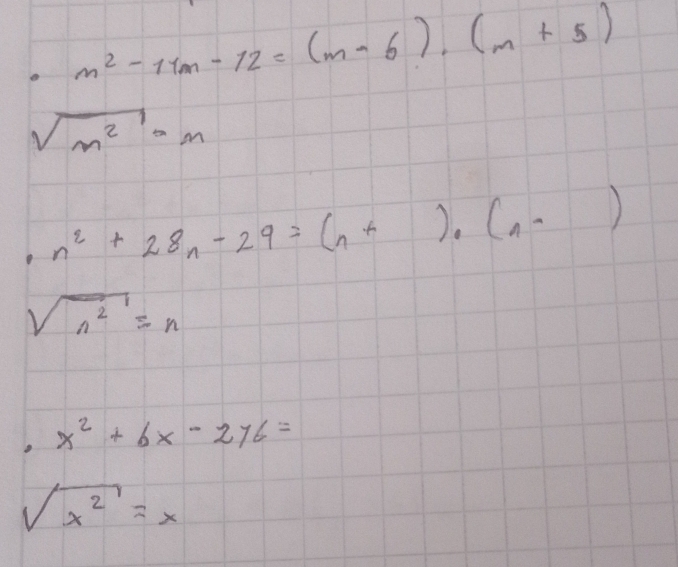 . m² - 11m - 12 = (m - 6) . (m + 5)
√m² = m
. n² + 28n - 29 = (n + ) . (n - )
√n² = n
. x² + 6x - 216 =
√x² = x